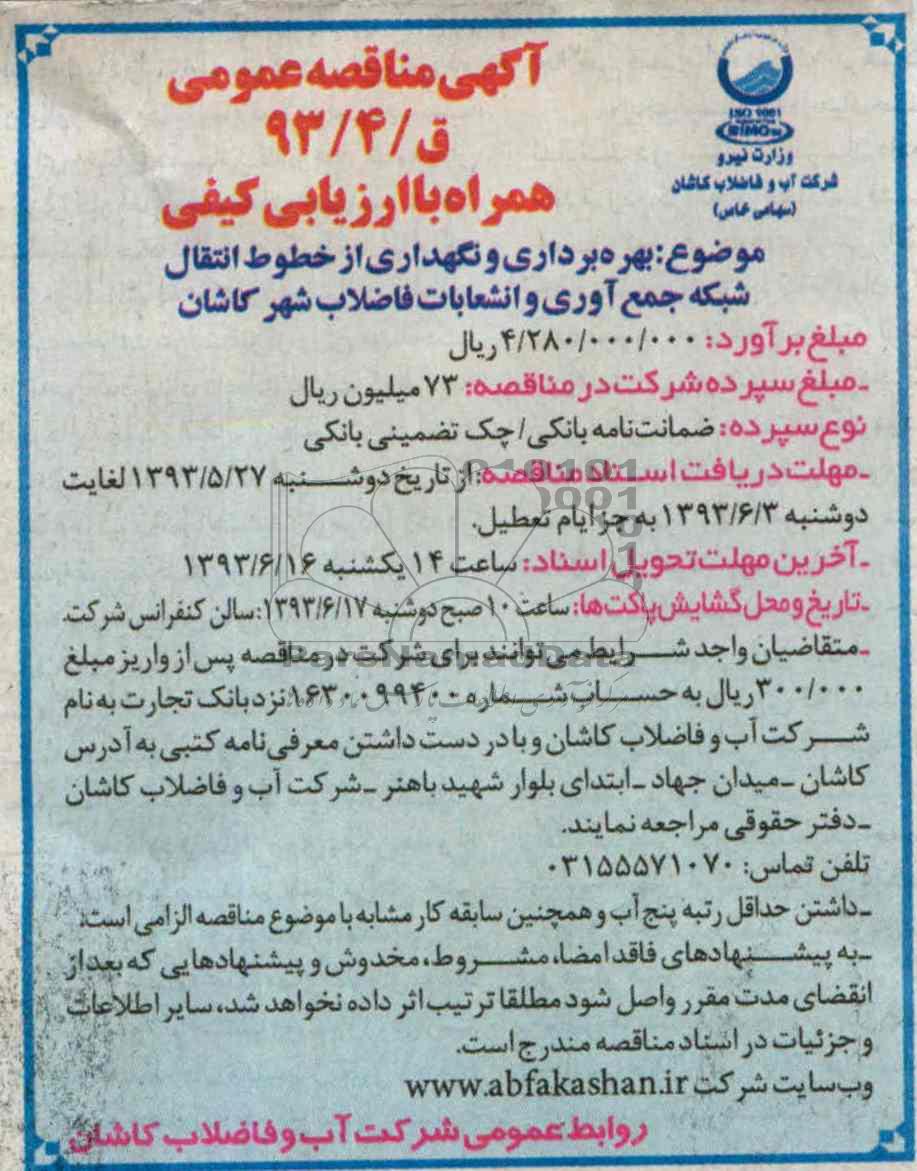 آگهی مناقصه عمومی
ق/۹۳/۴
همراه با ارزیابی کیفی
ISO 9001
RIMO
وزارت نیرو
شرکت آب و فاضلاب کاشان
(سهامی خاص)
موضوع: بهره‌برداری و نگهداری از خطوط انتقال
شبکه جمع آوری و انشعابات فاضلاب شهر کاشان
مبلغ برآورد: ۴/۲۸۰/۰۰۰/۰۰۰ ریال
ـ مبلغ سپرده شرکت در مناقصه: ۷۳ میلیون ریال
نوع سپرده: ضمانت‌نامه بانکی / چک تضمینی بانکی
ـ مهلت دریافت اسناد مناقصه: از تاریخ دوشنبه ۱۳۹۳/۵/۲۷ لغایت
دوشنبه ۱۳۹۳/۶/۳ به جز ایام تعطیل.
ـ آخرین مهلت تحویل اسناد: ساعت ۱۴ یکشنبه ۱۳۹۳/۶/۱۶
ـ تاریخ و محل گشایش پاکت‌ها: ساعت ۱۰ صبح دوشنبه ۱۳۹۳/۶/۱۷: سالن کنفرانس شرکت.
ـ متقاضیان واجد شرایط می‌توانند برای شرکت در مناقصه پس از واریز مبلغ
۳۰۰/۰۰۰ ریال به حساب شماره ۱۶۳۰۰۹۹۴۰۰ نزد بانک تجارت به نام
شرکت آب و فاضلاب کاشان و با در دست داشتن معرفی نامه کتبی به آدرس
کاشان ـ میدان جهاد ـ ابتدای بلوار شهید باهنر ـ شرکت آب و فاضلاب کاشان
ـ دفتر حقوقی مراجعه نمایند.
تلفن تماس: ۰۳۱۵۵۵۷۱۰۷۰
ـ داشتن حداقل رتبه پنج آب و همچنین سابقه کار مشابه با موضوع مناقصه الزامی است.
ـ به پیشنهادهای فاقد امضا، مشروط، مخدوش و پیشنهادهایی که بعد از
انقضای مدت مقرر واصل شود مطلقا ترتیب اثر داده نخواهد شد، سایر اطلاعات
و جزئیات در اسناد مناقصه مندرج است.
وب سایت شرکت www.abfakashan.ir
روابط عمومی شرکت آب و فاضلاب کاشان
ParsNamadData